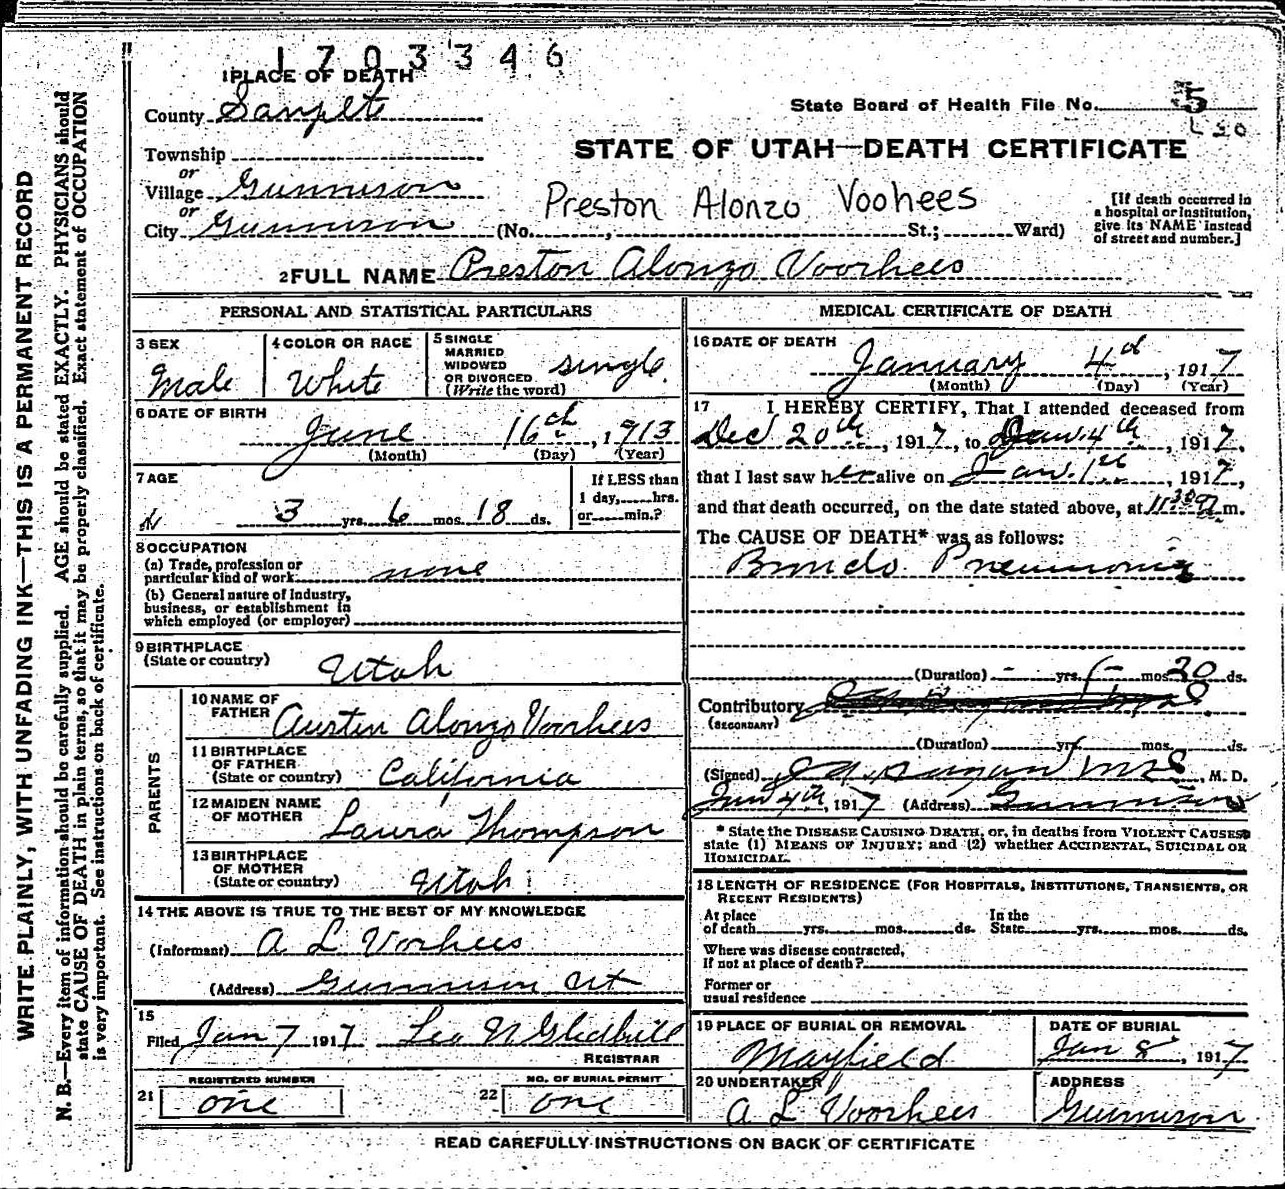 1703346
1 PLACE OF DEATH
County Sanpete
State Board of Health File No. 5
L 50
Township
STATE OF UTAH—DEATH CERTIFICATE
or
Village Gunnison
Preston Alonzo Voohees
or
City Gunnison (No. , St.; Ward)
[If death occurred in
a hospital or institution,
give its NAME instead
of street and number.]
2 FULL NAME Preston Alonzo Voorhees
PERSONAL AND STATISTICAL PARTICULARS
3 SEX
Male
4 COLOR OR RACE
White
5 SINGLE
MARRIED
WIDOWED
OR DIVORCED
(Write the word)
single
6 DATE OF BIRTH
June 16th, 1913
(Month) (Day) (Year)
7 AGE
3 yrs. 6 mos. 18 ds.
If LESS than
1 day, hrs.
or min.?
8 OCCUPATION
(a) Trade, profession or
particular kind of work none
(b) General nature of Industry,
business, or establishment in
which employed (or employer)
9 BIRTHPLACE
(State or country) Utah
PARENTS
10 NAME OF
FATHER Austin Alonzo Voorhees
11 BIRTHPLACE
OF FATHER
(State or country) California
12 MAIDEN NAME
OF MOTHER Laura Thompson
13 BIRTHPLACE
OF MOTHER
(State or country) Utah
14 THE ABOVE IS TRUE TO THE BEST OF MY KNOWLEDGE
(Informant) A L Vorhees
(Address) Gunnison Ut
15
Filed Jan 7 1917 Leo N Gledhill
REGISTRAR
21 REGISTERED NUMBER
one
22 NO. OF BURIAL PERMIT
one
MEDICAL CERTIFICATE OF DEATH
16 DATE OF DEATH
January 4th, 1917
(Month) (Day) (Year)
17 I HEREBY CERTIFY, That I attended deceased from
Dec 20th, 1917, to Jan. 4th, 1917,
that I last saw her alive on Jan. 1st, 1917,
and that death occurred, on the date stated above, at 11:30 a m.
The CAUSE OF DEATH* was as follows:
Broncho Pneumonia
(Duration) - yrs. - mos. 20 ds.
Contributory
(SECONDARY)
(Duration) yrs. mos. ds.
(Signed) M. D.
Jan 4th, 1917 (Address) Gunnison
* State the DISEASE CAUSING DEATH, or, in deaths from VIOLENT CAUSES
state (1) MEANS OF INJURY; and (2) whether ACCIDENTAL, SUICIDAL OR
HOMICIDAL.
18 LENGTH OF RESIDENCE (FOR HOSPITALS, INSTITUTIONS, TRANSIENTS, OR
RECENT RESIDENTS)
At place
of death yrs. mos. ds.
In the
State yrs. mos. ds.
Where was disease contracted,
If not at place of death?
Former or
usual residence
19 PLACE OF BURIAL OR REMOVAL
Mayfield
DATE OF BURIAL
Jan 8, 1917
20 UNDERTAKER
A L Voorhees
ADDRESS
Gunnison
READ CAREFULLY INSTRUCTIONS ON BACK OF CERTIFICATE
WRITE PLAINLY, WITH UNFADING INK—THIS IS A PERMANENT RECORD
N. B.—Every item of information should be carefully supplied. AGE should be stated EXACTLY. PHYSICIANS should
state CAUSE OF DEATH in plain terms, so that it may be properly classified. Exact statement of OCCUPATION
is very important. See instructions on back of certificate.